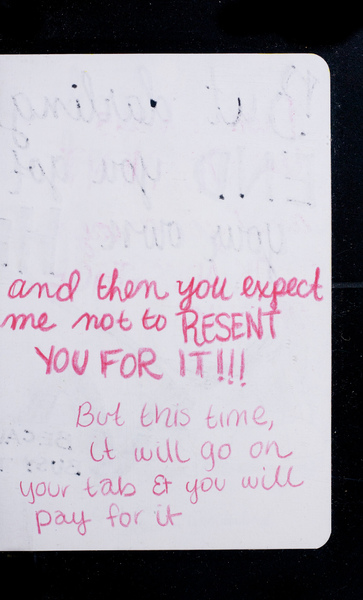 and then you expect
me not to RESENT
YOU FOR IT!!!
But this time,
it will go on
your tab & you will
pay for it